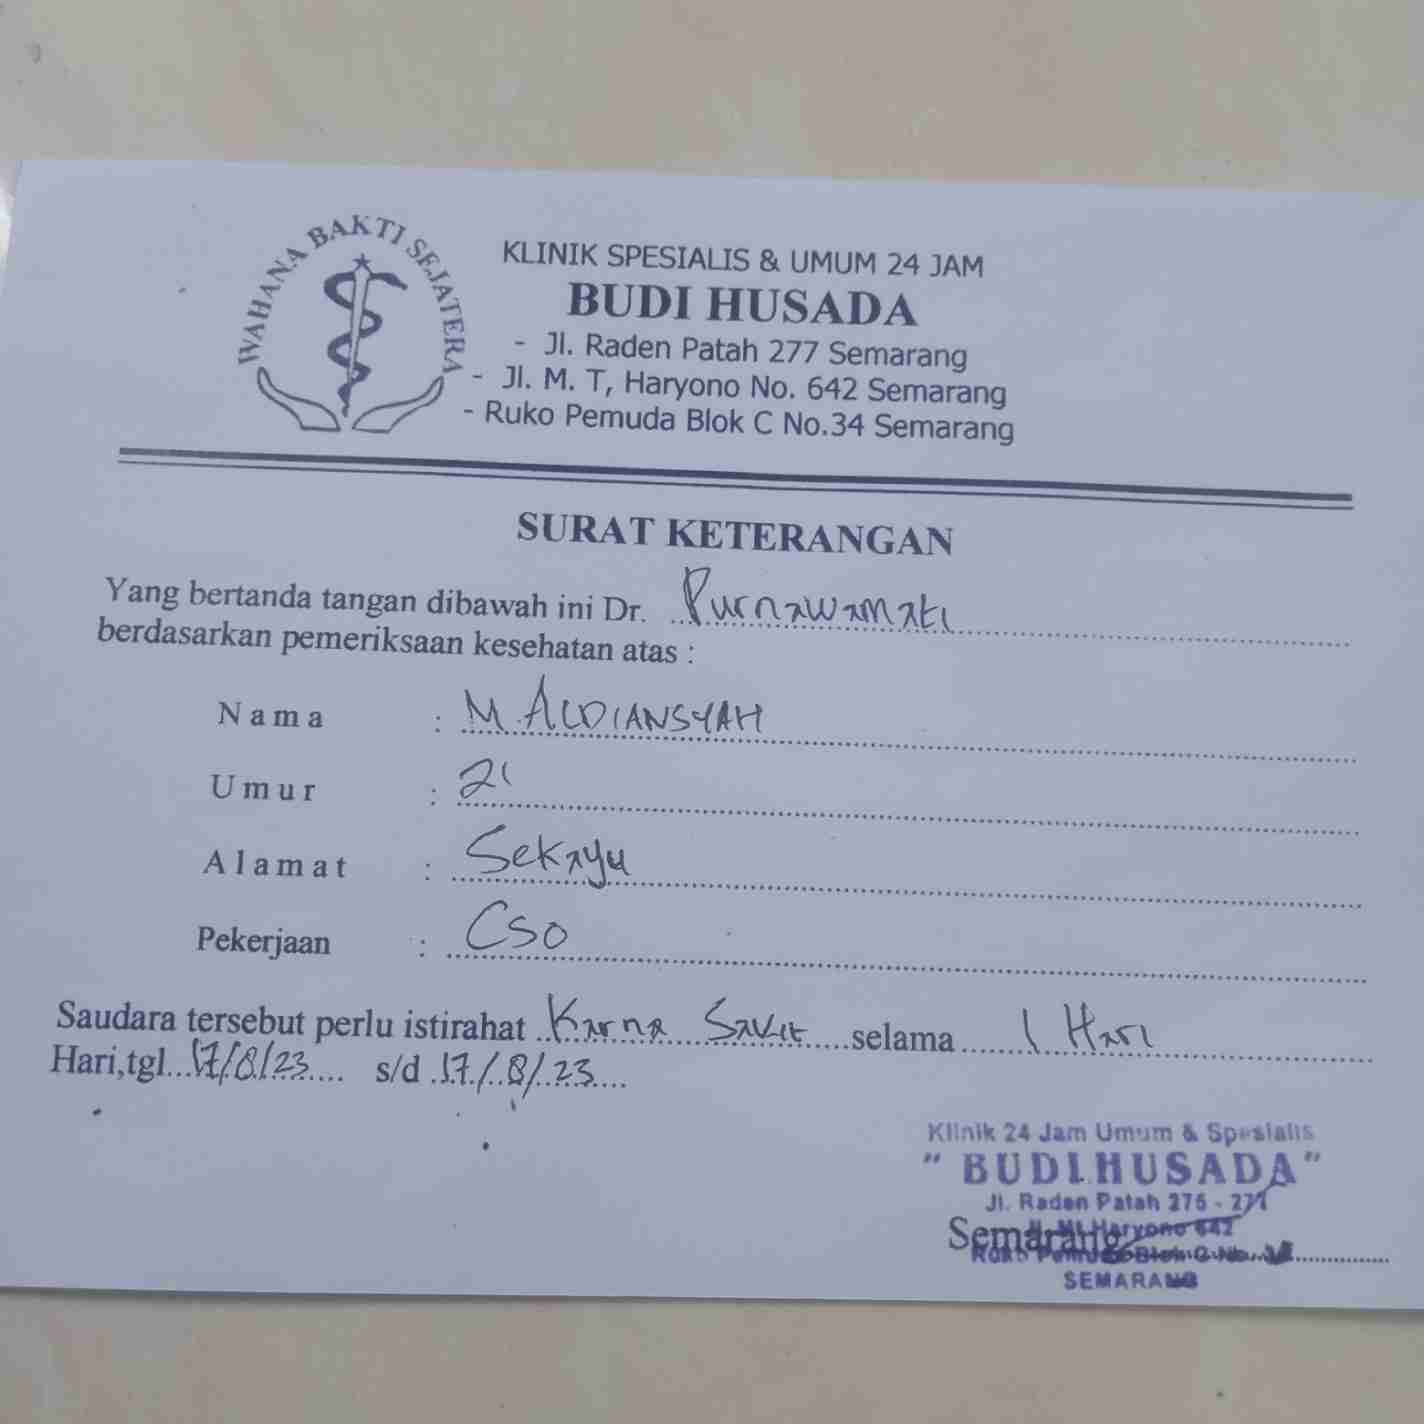 WAHANA BAKTI SEJATERA
KLINIK SPESIALIS & UMUM 24 JAM
BUDI HUSADA
- Jl. Raden Patah 277 Semarang
- Jl. M. T, Haryono No. 642 Semarang
- Ruko Pemuda Blok C No.34 Semarang
SURAT KETERANGAN
Yang bertanda tangan dibawah ini Dr. Purnawamati
berdasarkan pemeriksaan kesehatan atas :
Nama : M. ALDIANSYAH
Umur : 21
Alamat : Sekayu
Pekerjaan : CSO
Saudara tersebut perlu istirahat Karna Sakit selama 1 Hari
Hari,tgl 17/8/23 s/d 17/8/23
Klinik 24 Jam Umum & Spesialis
" BUDI HUSADA "
Jl. Raden Patah 275 - 277
Jl. Mt Haryono 642
Semarang
Ruko Pemuda Blok C No.
SEMARANG